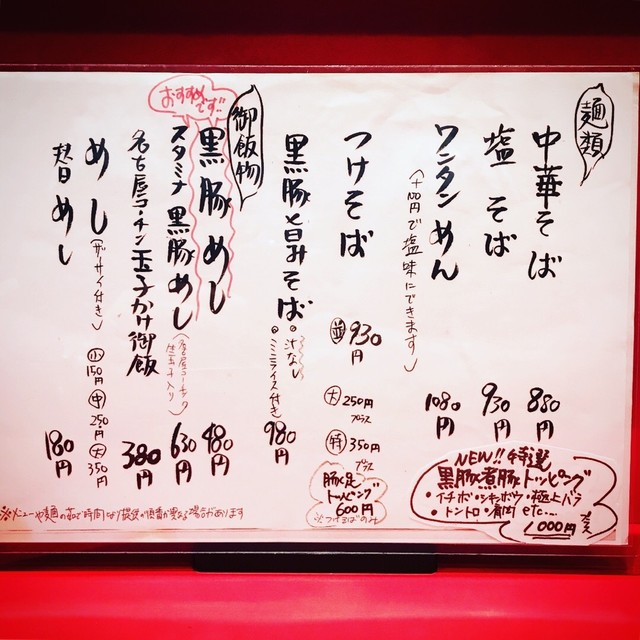 麺類
中華そば 880円
塩そば 930円
ワンタンめん 1080円
(+100円で塩味にできます)
つけそば
並 930円
大 250円プラス
特 350円プラス
豚足
トッピング
600円
※つけそばのみ
黒豚旨みそば 980円
・汁なし
・ミニライス付き
御飯物
おすすめです!!
黒豚めし 480円
スタミナ黒豚めし 630円
(名古屋コーチン
生玉子入り)
名古屋コーチン玉子かけ御飯 380円
めし(ザーサイ付き)
小 150円
中 250円
大 350円
替めし 180円
NEW!! 特選
黒豚煮豚トッピング
・イチボ・シキンボウ・極上バラ
・トントロ・肩肉 etc...
1000円プラス
※メニューや麺の茹で時間により提供が順番が異なる場合があります